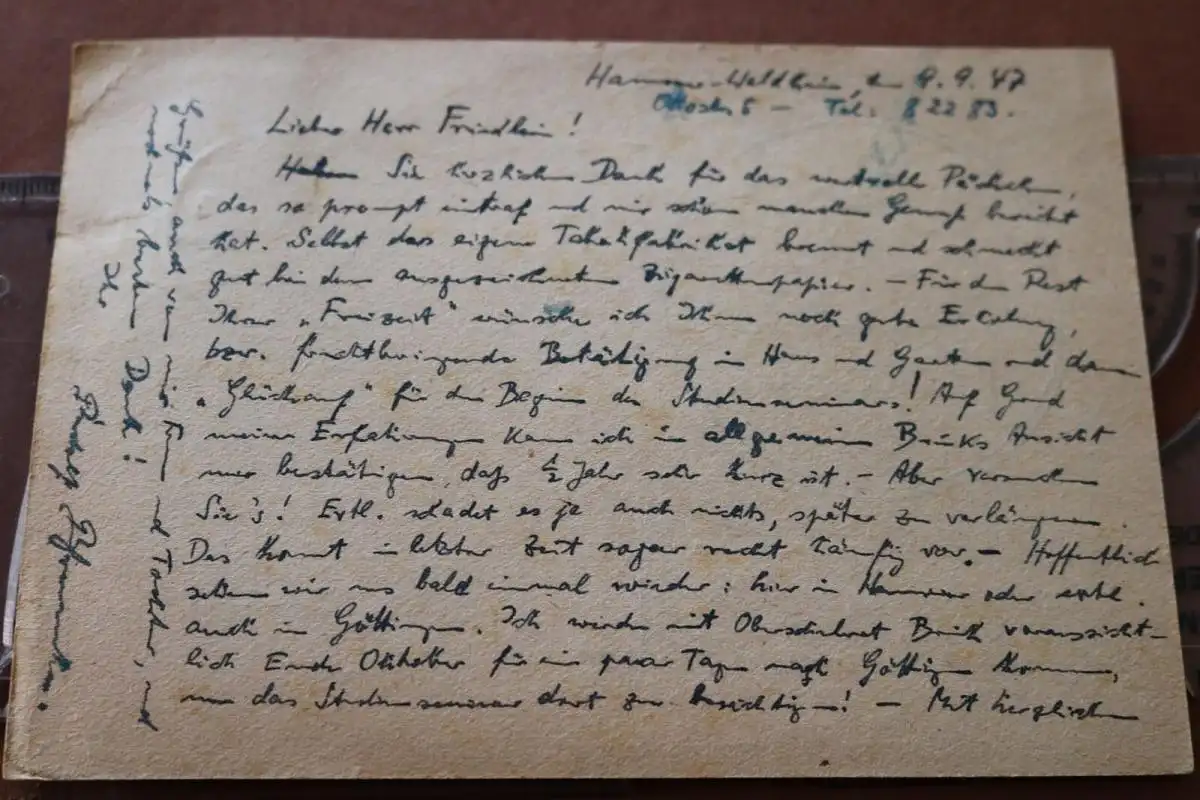 Hannover-Waldheim, den 8. 9. 47
Ottostr. 6 – Tel: 8 22 83.
Lieber Herr Friedlein!
Haben Sie herzlichen Dank für das wertvolle Päckchen,
das so prompt eintraf und mir schon manchen Genuß bereitet
hat. Selbst das eigene Tabakfabrikat brennt und schmeckt
gut bei dem ausgezeichneten Zigarettenpapier. – Für den Rest
Ihrer „Freizeit“ wünsche ich Ihnen noch gute Erholung,
bzw. fruchtbringende Betätigung in Haus und Garten und dann
„Glückauf“ für den Beginn des Studienseminars! Auf Grund
meiner Erfahrungen kann ich im allgemeinen Ansicht
nur bestätigen, daß ½ Jahr sehr kurz ist. – Aber versuchen
Sie's! Evtl. schadet es ja auch nichts, später zu verlängern.
Das kommt in letzter Zeit sogar recht häufig vor. – Hoffentlich
sehen wir uns bald einmal wieder: hier in Hannover oder evtl.
auch in Göttingen. Ich werde mit Oberschulrat voraussicht-
lich Ende Oktober für ein paar Tage nach Göttingen kommen,
um das Studienseminar dort zu besichtigen! – Mit herzlichen
Grüßen auch von meiner Frau und Tochter, und
nochmals besten Dank!
Ihr
Rudolf